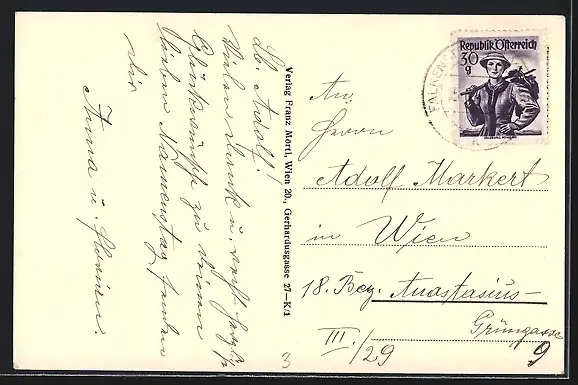 Lb. Adolf!
Vielen Dank u. recht herzl.
Glückwünsche zu deinem
lieben Namenstag senden
dir
Anna u.
Verlag Franz Mörtl, Wien 20., Gerhardusgasse 27—K/1
Republik Österreich
30
g
An
Herrn
Adolf Markert
in Wien
18. Bez. Anastasius-
Grüngasse
III./29
9
3